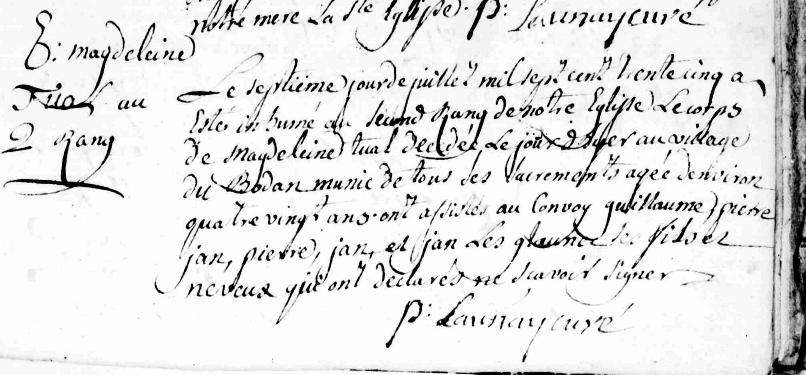 notre mere La Ste Eglise. P: Launay curé
E: magdeleine
Tual au
2 Rang
Le septiéme jour de juillet mil sept cent trente cinq a
Estés inhumé au second Rang de notre Eglise Le corps
de magdeleine tual decedée Le jour d'hyer au village
du Bodan munie de tous ses sacrements agée denviron
quatre vingt ans. ont assistés au Convoy guillaume, pierre
jan, pierre, jan, et jan Les ses fils et
neveux qui ont declarés ne scavoir signer
P: Launay curé